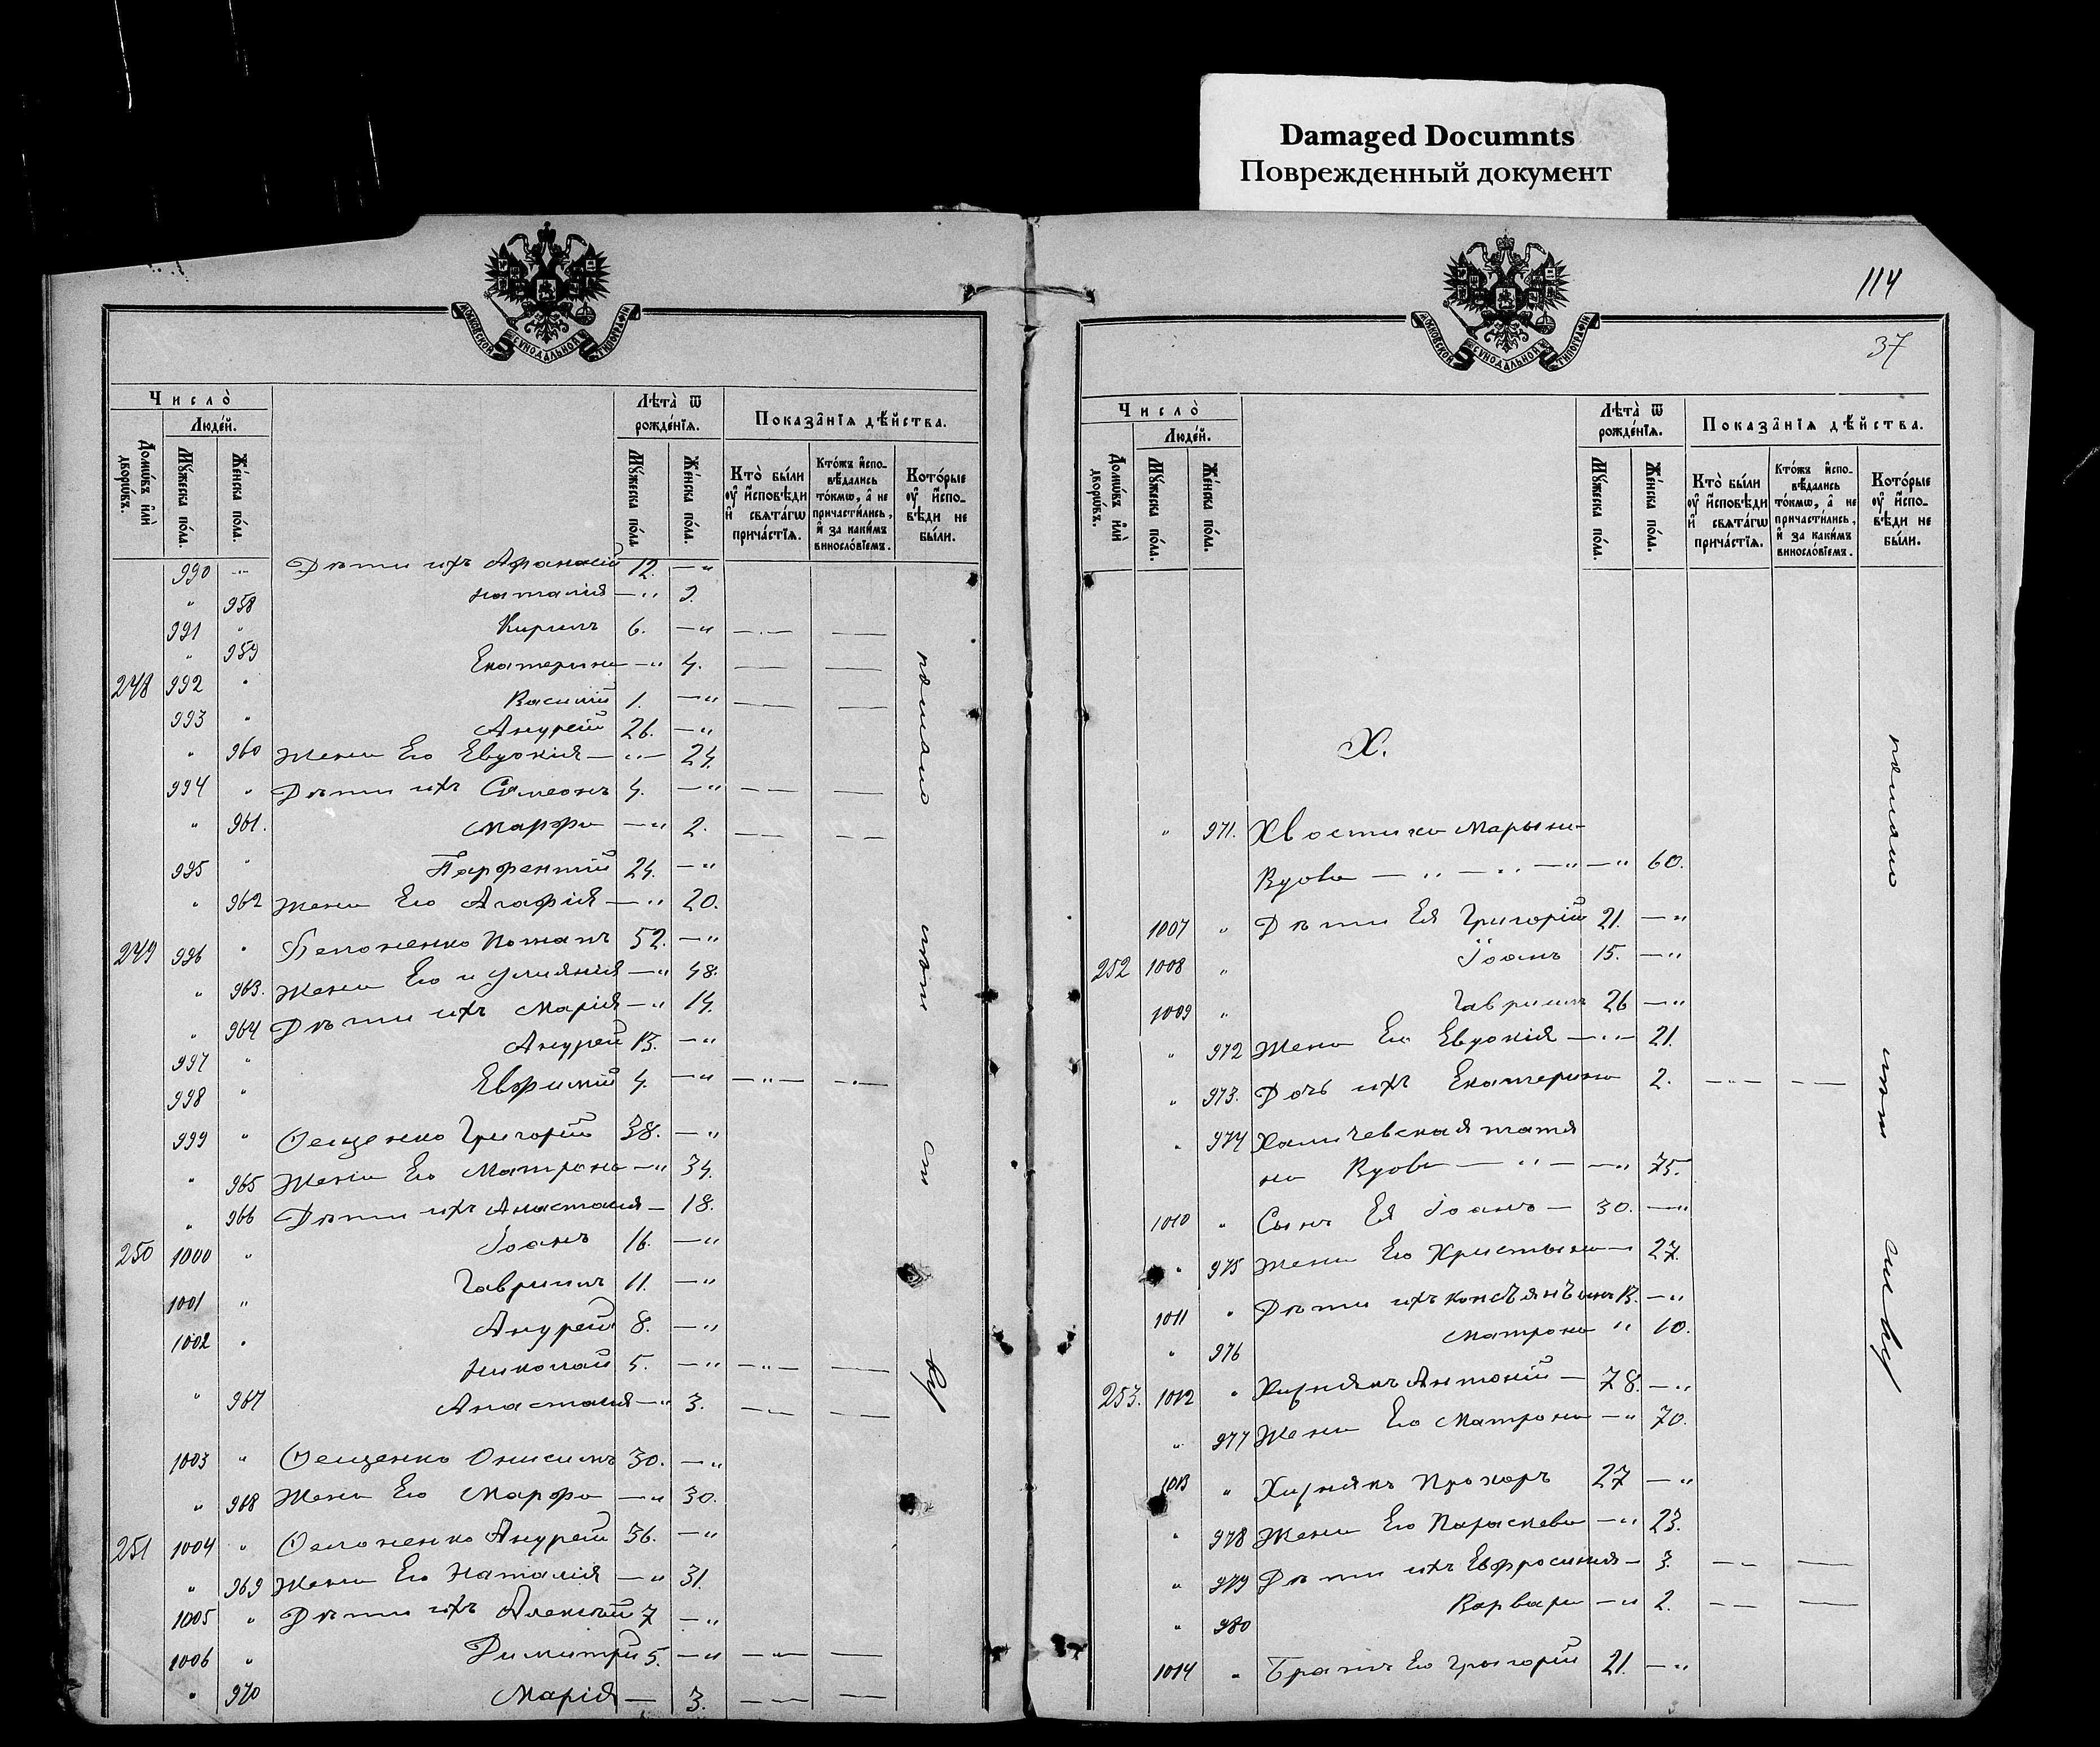 Damaged Documnts
Поврежденный документ
МОСКОВСКОЙ СѴНОДАЛЬНОЙ ТИПОГРАФІИ
Число̀
Люде́й.
Домѡ́въ и҆лѝ дворѡ́въ.
Мꙋ́жеска по́ла.
Же́нска по́ла.
Лѣ́та ѿ рожде́нїѧ.
Мꙋ́жеска по́ла
Же́нска по́ла.
Показа̂нїѧ дѣ́йства.
Кто̀ бы́ли ᲂу҆ и҆сповѣ́ди и҆ свѧта́гѡ прича́стїѧ.
Кто́жъ и҆сповѣ́дались то́кмѡ, а҆ не причасти́лись, и҆ за каки́мъ винослѡ́вїемъ.
Кото́рые ᲂу҆ и҆сповѣ́ди не бы́ли.
990 " Дѣти ихъ Афанасій 12. — "
" 958 Наталія — " 9.
991 " Кирилъ 6. — "
" 959 Екатерина — " 4.
248 992 " Василій 1. — "
993 " Андрей 26. — "
" 960 Жена Его Евдокія — " — 24.
994 " Дѣти ихъ Симеонъ 4. — "
" 961. Марфа — " 2.
995 " Парфентій 24. — "
" 962 Жена Его Агафія — " 20.
249 996 " Потапъ 52. — "
" 963. Жена Его Иулианія — " 48.
" 964 Дѣти ихъ Марія — " 14.
997 " Андрей 13. — "
998 " Евфимій 4. — "
999 " Ѳещенко Григорій 38. — "
" 965 Жена Его Матрона — " 34.
" 966 Дѣти ихъ Анастасія — 18.
250 1000 " Іоанъ 16. — "
1001 " Гавриилъ 11. — "
1002 " Андрей 8. — "
Николай 5. — "
" 967 Анастасія — " 3.
1003 " Ѳещенко Онисимъ 30. — "
" 968 Жена Его Марфа — " 30.
251 1004 " Андрей 36. — "
" 969 Жена Его Наталія — " 31.
1005 " Дѣти ихъ Алексѣй 7 — "
1006 " Димитри 5. — "
" 970 Марія — 3.
114
37
МОСКОВСКОЙ СѴНОДАЛЬНОЙ ТИПОГРАФІИ
Число̀
Люде́й.
Домѡ́въ и҆лѝ дворѡ́въ.
Мꙋ́жеска по́ла.
Же́нска по́ла.
Лѣ́та ѿ рожде́нїѧ.
Мꙋ́жеска по́ла.
Же́нска по́ла.
Показа̂нїѧ дѣ́йства.
Кто̀ бы́ли ᲂу҆ и҆сповѣ́ди и҆ свѧта́гѡ прича́стїѧ.
Кто́жъ и҆сповѣ́дались то́кмѡ, а҆ не причасти́лись, и҆ за каки́мъ винослѡ́вїемъ.
Кото́рые ᲂу҆ и҆сповѣ́ди не бы́ли.
Х.
" 971. Хвостика Марына
Вдова — " — " — " — " 60.
1007 " Дѣти Ея Григорій 21. — "
252 1008 " Іоанъ 15. — "
1009 " Гавриилъ 26 — "
" 972 Жена Его Евдокія — " — 21.
" 973. Дочь ихъ Екатерина 2.
" 974 Татя
на Вдова — " — — " 75.
1010 " Сынъ Ея Іоанъ — 30. — "
" 975 Жена Его Христына — " 27.
1011 " Дѣти ихъ 13. — "
" 976 Матрона " 10.
253. 1012 " Хирнякъ Антоній — 78. — "
" 977 Жена Его Матрона — " 70.
1013 " Хирнякъ Прохоръ 27 — "
" 978 Жена Его Параскева — " 23.
" 979 Дѣти ихъ Евфросинія — 3.
" 980 Варвара — " 2.
1014 " Братъ Его Григорій 21. — "